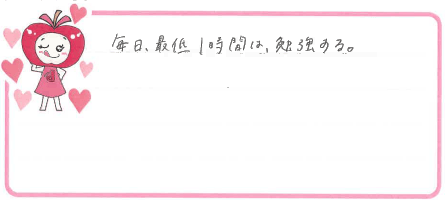 毎日、最低1時間は、勉強する。